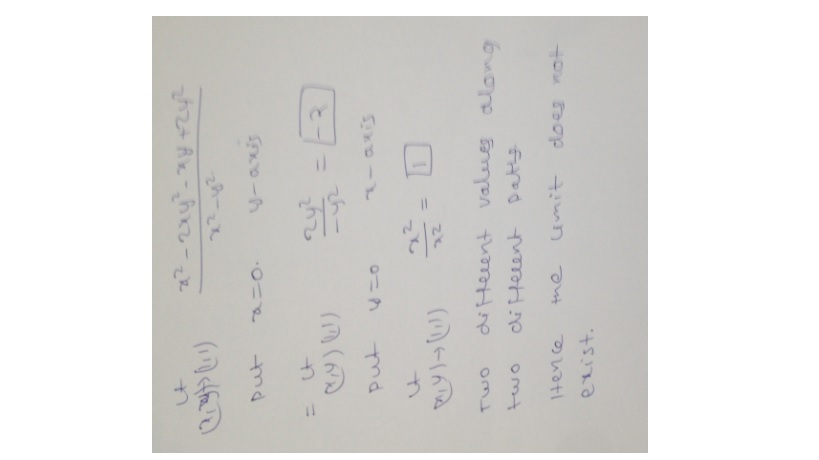 lt x² - 2xy² - xy + 2y²
(x,y)→(1,1) x² - y²
put x=0. y-axis
= lt 2y²/-y² = -2
(x,y) (1,1)
put y=0 x-axis
lt x²/x² = 1
(x,y)→(1,1)
Two different values along
two different paths
Hence the limit does not
exist.